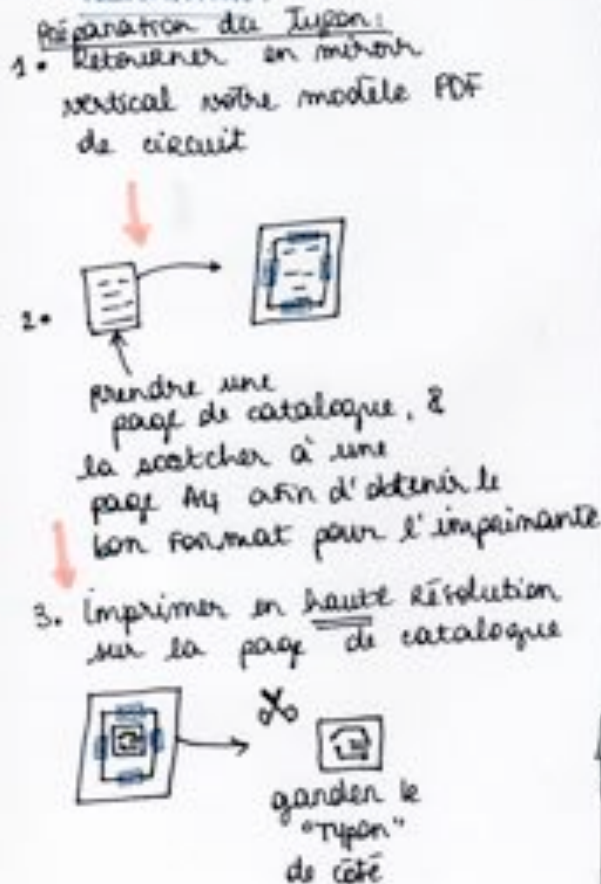 Préparation du Typon:
1. Retourner en miroir
vertical votre modèle PDF
de circuit
2.
prendre une
page de catalogue, &
la scotcher à une
page A4 afin d'obtenir le
bon format pour l'imprimante
3. Imprimer en haute Résolution
sur la page de catalogue
garder le
"Typon"
de côté